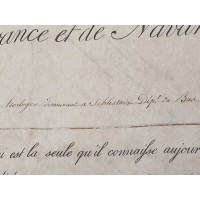 rance et de Navar
horloger demeurant a Schlestadt Dépt. du Bas
i est la seule qu'il connaisse aujour